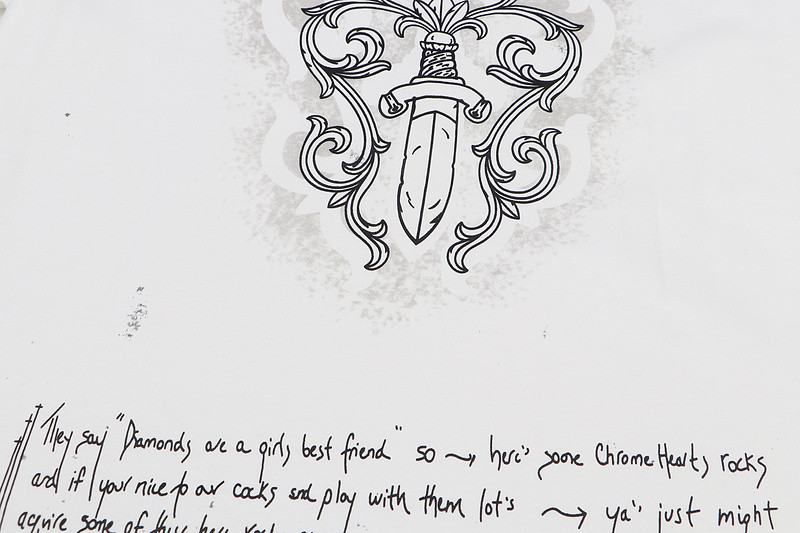 They say "Diamonds are a girls best friend" so → here's some Chrome Hearts rocks
and if your nice to our cocks and play with them lot's → ya' just might
aquire some of